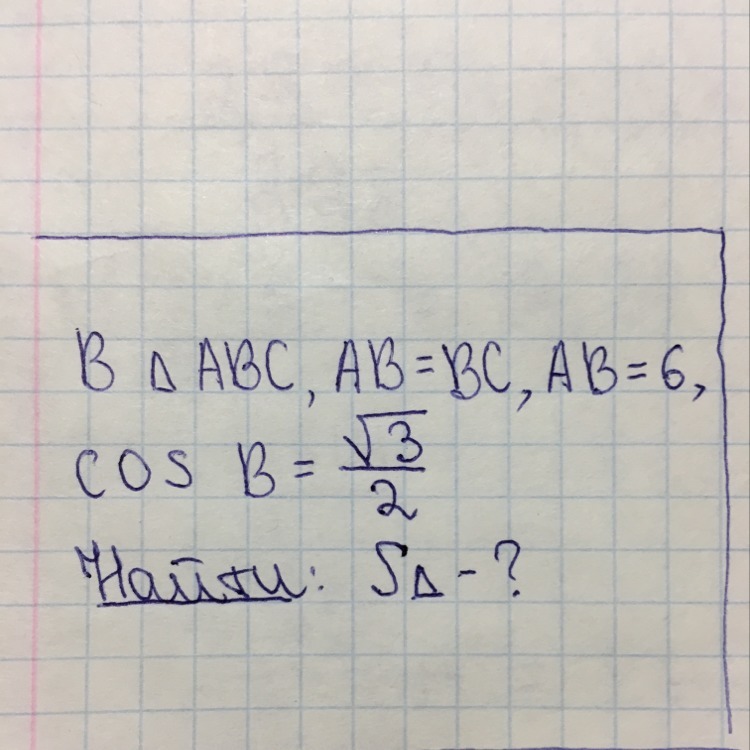 В △ ABC, AB = BC, AB = 6,
cos B = √3/2
Найти: S△ - ?